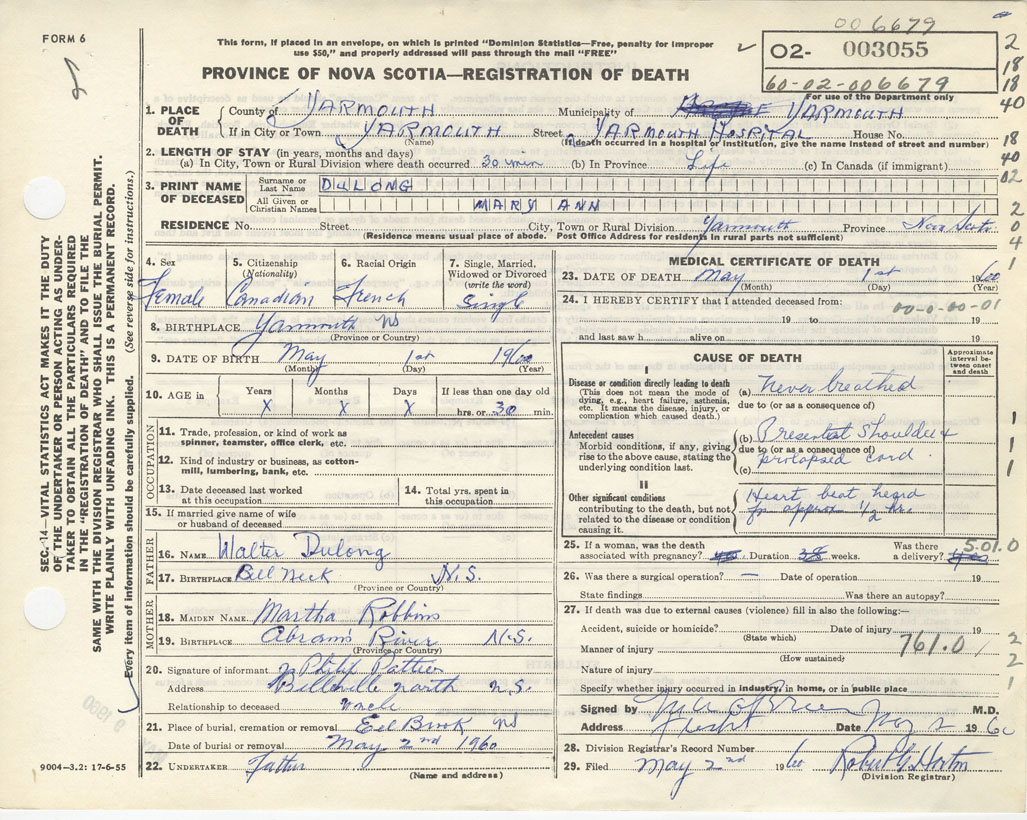 00 6679
FORM 6
This form, if placed in an envelope, on which is printed "Dominion Statistics—Free, penalty for improper
use $50," and properly addressed will pass through the mail "FREE"
02- 003055
60-02-006679
For use of the Department only
PROVINCE OF NOVA SCOTIA—REGISTRATION OF DEATH
1. PLACE OF DEATH
County of YARMOUTH Municipality of YARMOUTH
If in City or Town YARMOUTH Street YARMOUTH HOSPITAL House No.
(Name) (If death occurred in a hospital or institution, give the name instead of street and number)
2. LENGTH OF STAY (in years, months and days)
(a) In City, Town or Rural Division where death occurred 30 min (b) In Province Life (c) In Canada (if immigrant)
3. PRINT NAME OF DECEASED
Surname or Last Name DULONG
All Given or Christian Names MARY ANN
RESIDENCE No. Street City, Town or Rural Division Yarmouth Province Nova Scotia
(Residence means usual place of abode. Post Office Address for residents in rural parts not sufficient)
4. Sex 5. Citizenship 6. Racial Origin 7. Single, Married,
(Nationality) Widowed or Divorced
(write the word)
Female Canadian French Single
8. BIRTHPLACE Yarmouth NS
(Province or Country)
9. DATE OF BIRTH May 1st 1960
(Month) (Day) (Year)
10. AGE in Years Months Days If less than one day old
X X X hrs. or 30 min.
OCCUPATION
11. Trade, profession, or kind of work as
spinner, teamster, office clerk, etc.
12. Kind of industry or business, as cotton-
mill, lumbering, bank, etc.
13. Date deceased last worked
at this occupation
14. Total yrs. spent in
this occupation
15. If married give name of wife
or husband of deceased
FATHER
16. NAME Walter Dulong
17. BIRTHPLACE Bell Neck N.S.
(Province or Country)
MOTHER
18. MAIDEN NAME Martha Robbins
19. BIRTHPLACE Abrams River N.S.
(Province or Country)
20. Signature of informant Philip Pottier
Address Belleville north N.S.
Relationship to deceased Uncle
21. Place of burial, cremation or removal Eel Brook NS
Date of burial or removal May 2nd 1960
22. UNDERTAKER Father
(Name and address)
MEDICAL CERTIFICATE OF DEATH
23. DATE OF DEATH May 1st 1960
(Month) (Day) (Year)
24. I HEREBY CERTIFY that I attended deceased from:
00-0-00-01
19 to 19
and last saw h alive on 19
CAUSE OF DEATH
Approximate interval between onset and death
I
Disease or condition directly leading to death
(This does not mean the mode of
dying, e.g., heart failure, asthenia,
etc. It means the disease, injury, or
complication which caused death.)
(a) Never breathed
due to (or as a consequence of)
Antecedent causes
Morbid conditions, if any, giving
rise to the above cause, stating the
underlying condition last.
(b) Present shoulder &
due to (or as a consequence of)
prolapsed cord
(c)
II
Other significant conditions
contributing to the death, but not
related to the disease or condition
causing it.
Heart beat heard
for approx 1/2 hr.
25. If a woman, was the death
associated with pregnancy? Duration 38 weeks. Was there
a delivery?
5.01.0
26. Was there a surgical operation? — Date of operation 19
State findings Was there an autopsy?
27. If death was due to external causes (violence) fill in also the following:—
Accident, suicide or homicide? Date of injury 19
(State which)
Manner of injury 761.0
(How sustained)
Nature of injury
Specify whether injury occurred in industry, in home, or in public place
Signed by M.D.
Address Date May 2 1960
28. Division Registrar's Record Number
29. Filed May 2nd 1960 Robert G Horton
(Division Registrar)
SEC. 14—VITAL STATISTICS ACT MAKES IT THE DUTY
OF THE UNDERTAKER OR PERSON ACTING AS UNDER-
TAKER TO OBTAIN ALL THE PARTICULARS REQUIRED
IN THE "REGISTRATION OF DEATH" AND FILE THE
SAME WITH THE DIVISION REGISTRAR WHO SHALL ISSUE THE BURIAL PERMIT.
WRITE PLAINLY WITH UNFADING INK. THIS IS A PERMANENT RECORD.
Every item of information should be carefully supplied. (See reverse side for instructions.)
9004—3.2: 17-6-55
2
18
18
40
18
40
02
2
0
4
1
1
1
1
2
2
1